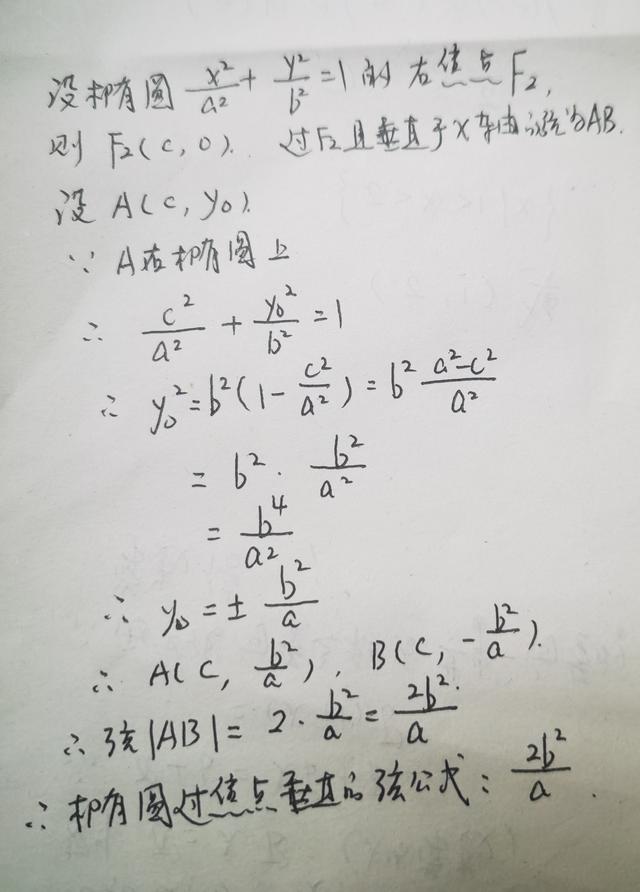 设椭圆 x²/a² + y²/b² = 1 的右焦点 F₂,
则 F₂(c, 0). 过F₂且垂直于X轴的弦为AB.
设 A(c, y₀).
∵ A在椭圆上
∴ c²/a² + y₀²/b² = 1
∴ y₀² = b²(1 - c²/a²) = b² (a²-c²)/a²
= b² · b²/a²
= b⁴/a²
∴ y₀ = ± b²/a
∴ A(c, b²/a), B(c, -b²/a).
∴ 弦|AB| = 2 · b²/a = 2b²/a.
∴ 椭圆过焦点垂直的弦公式: 2b²/a.